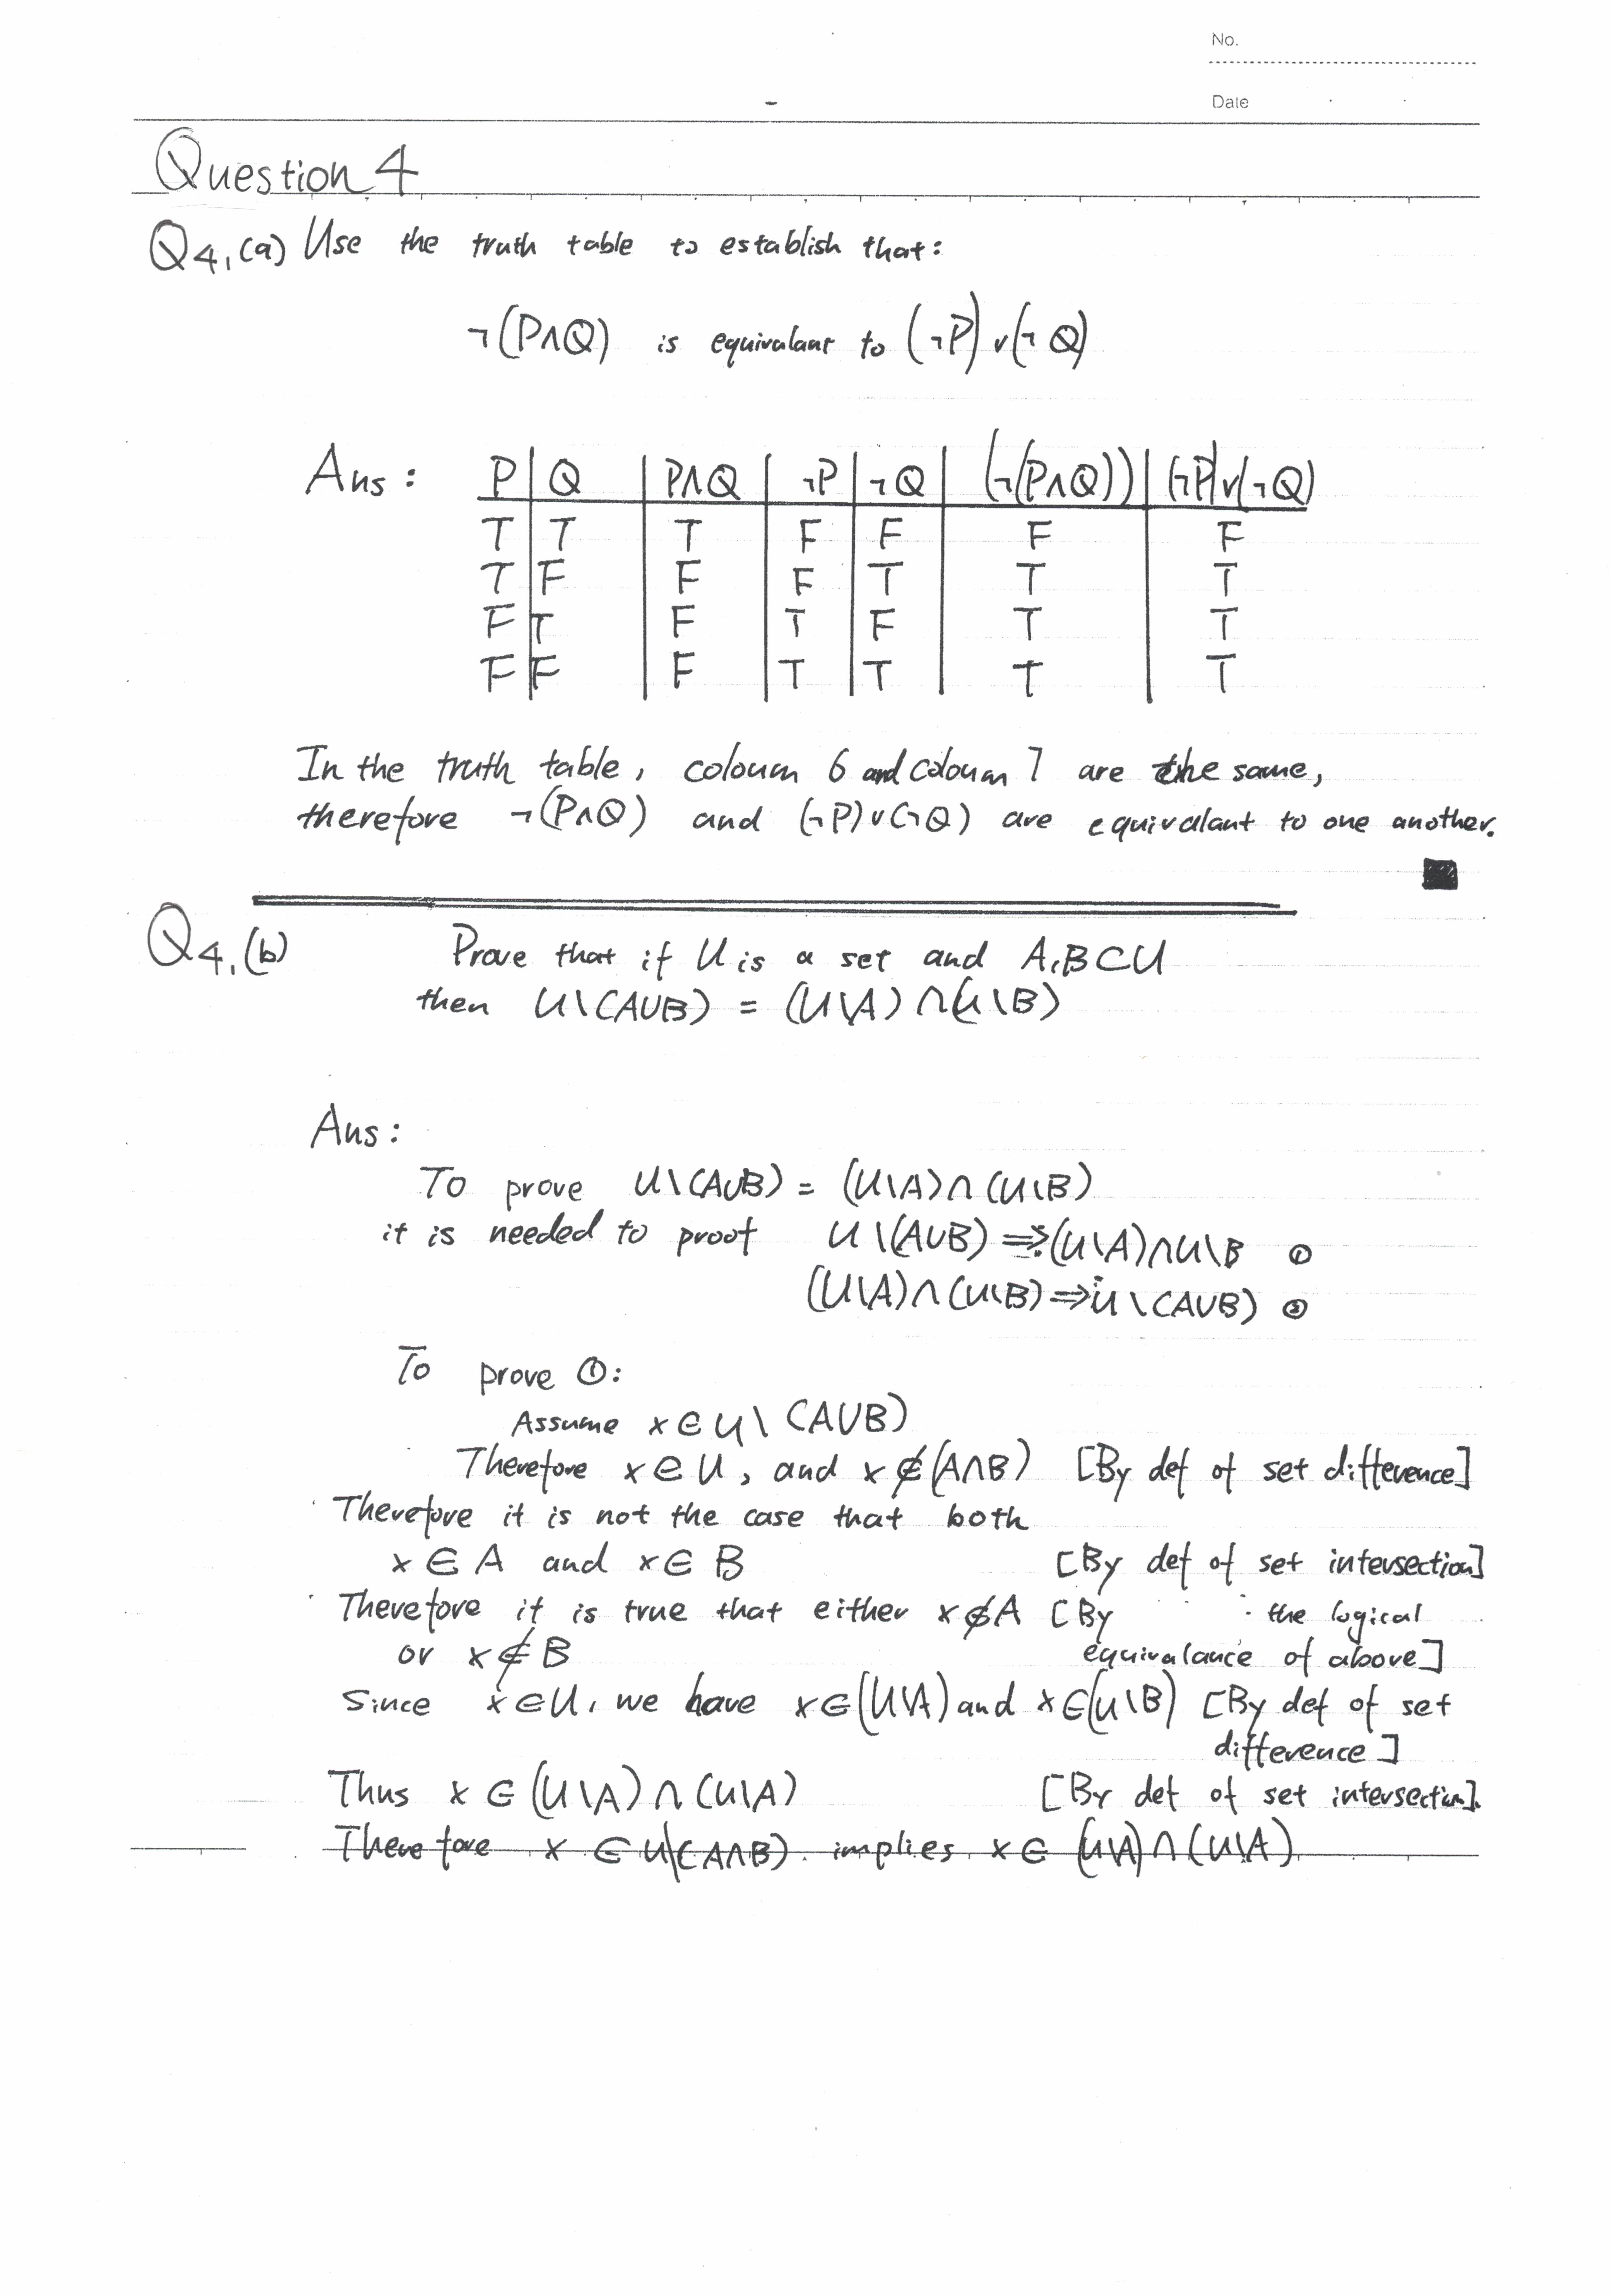 No.
Date
Question 4
Q4, (a) Use the truth table to establish that:
¬(P∧Q) is equivalant to (¬P)∨(¬Q)
Ans: P Q P∧Q ¬P ¬Q (¬(P∧Q)) (¬P)∨(¬Q)
T T T F F F F
T F F F T T T
F T F T F T T
F F F T T T T
In the truth table, coloum 6 and coloum 7 are the same,
therefore ¬(P∧Q) and (¬P)∨(¬Q) are equivalant to one another.
Q4, (b) Prove that if U is a set and A,B⊂U
then U\(A∪B) = (U\A)∩(U\B)
Ans:
To prove U\(A∪B) = (U\A)∩(U\B)
it is needed to proof U\(A∪B) ⇒ (U\A)∩U\B ①
(U\A)∩(U\B) ⇒ U\(A∪B) ②
To prove ①:
Assume x∈U\(A∪B)
Therefore x∈U, and x∉(A∩B) [By def of set difference]
Therefore it is not the case that both
x∈A and x∈B [By def of set intersection]
Therefore it is true that either x∉A [By the logical
or x∉B equivalance of above]
Since x∈U, we have x∈(U\A) and x∈(U\B) [By def of set
difference]
Thus x∈(U\A)∩(U\A) [By def of set intersection].
Therefore x∈U\(A∩B) implies x∈(U\A)∩(U\A)